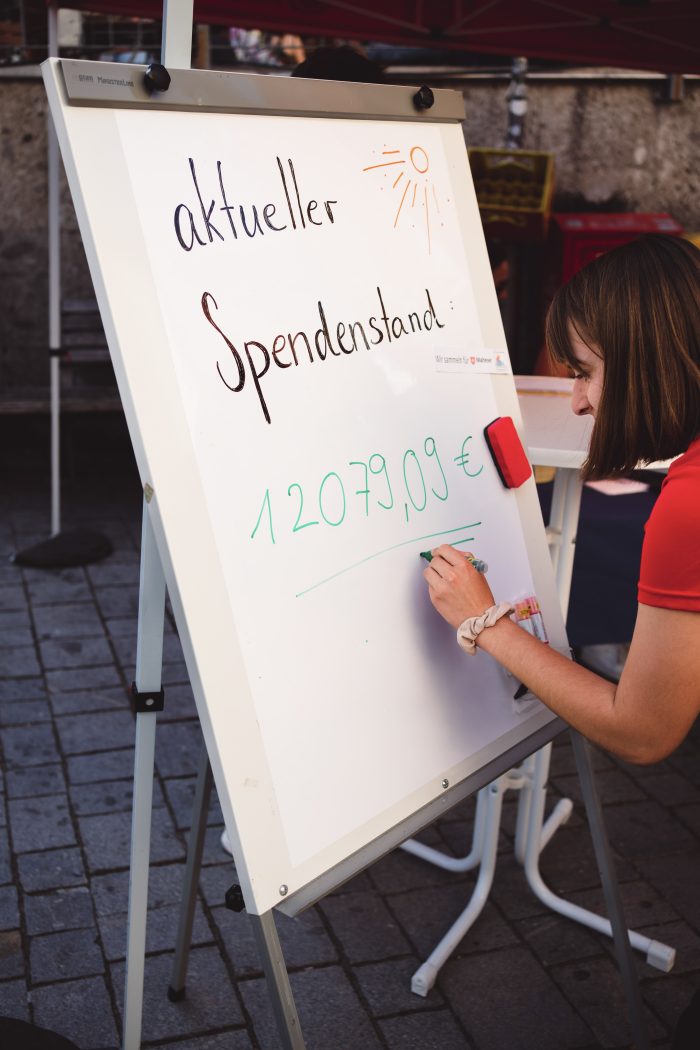 aktueller
Spendenstand:
Wir sammeln für Malteser
12079,09 €